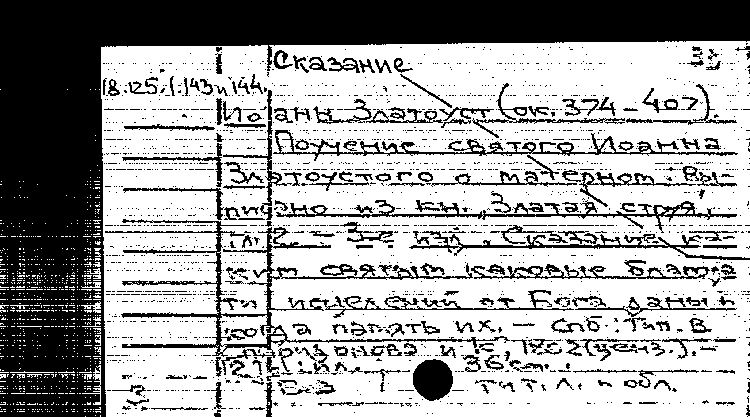 Сказание
18.125.1.143 и 144.
Иоанн Златоуст (ок. 374-407).
Поучение святого Иоанна
Златоустого о матерном. Вы-
писано из кн. "Златая струя",
гл. 2. - 3-е изд. Сказание ка-
ким святым каковые благода
ти исцелений от Бога даны и
когда память их. - Спб: Тип. В
и К°, 1802 (ценз.). -
12 л.: ил. 36 см.
Без тит. л. и обл.